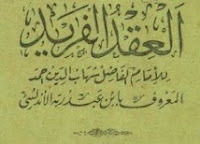 العقد الفريد
للامام الفاضل شهاب الدين احمد
المعروف بابن عبد ربه الاندلسي